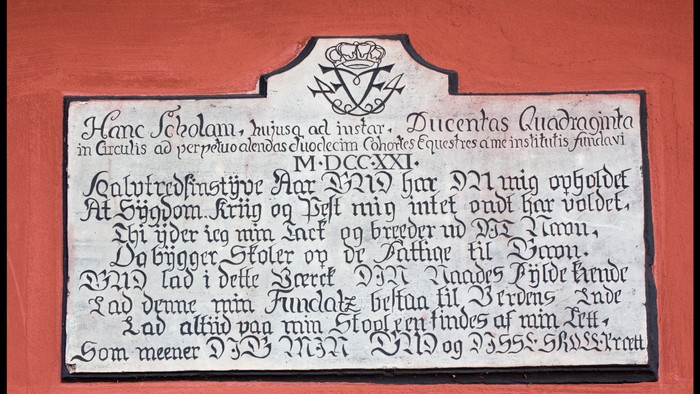 Hanc Scholam, hujusq ad instar, Ducentas Quadraginta
in Circulis ad perpetuo alendas duodecim Cohortes Equestres a me institutis fundavi
M·DCC·XXI·
Halvtredsinstÿve Aar GUD har DU mig opholdet
At Sÿgdom Kriig og Pest mig intet ondt har voldet,
Thi ÿder ieg min Tack og breeder ud DIT Navn,
Og bÿgger Skoler op de Fattige til Gavn.
GUD lad i dette Værck DIN Naades Fÿlde kiende
Lad denne min Fundatz bestaa til Verdens Ende
Lad altiid paa min Stool een findes af min Ætt,
Som meener DIG MIN GUD og DISSE SKOLER rætt